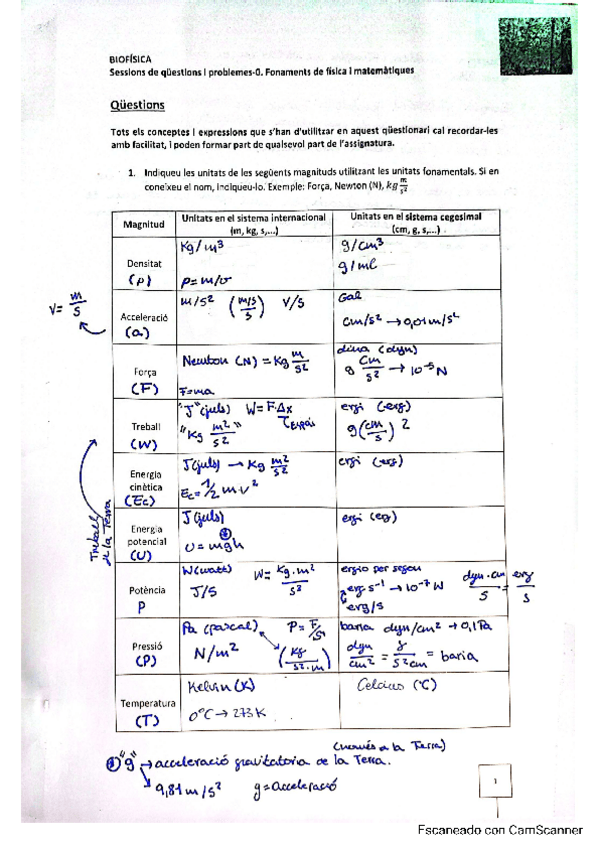 BIOFÍSICA
Sessions de qüestions i problemes-0. Fonaments de física i matemàtiques
Qüestions
Tots els conceptes i expressions que s'han d'utilitzar en aquest qüestionari cal recordar-les
amb facilitat, i poden formar part de qualsevol part de l'assignatura.
1. Indiqueu les unitats de les següents magnituds utilitzant les unitats fonamentals. Si en
coneixeu el nom, indiqueu-lo. Exemple: Força, Newton (N), kg m/s²
Magnitud
Unitats en el sistema internacional
(m, kg, s,...)
Unitats en el sistema cegesimal
(cm, g, s,...)
Densitat
(ρ)
Kg/m³
ρ=m/v
g/cm³
g/ml
v= m/s
Acceleració
(a)
m/s² (m/s / s) v/s
Gal
cm/s² → 0,01 m/s²
Força
(F)
Newton (N) = Kg m/s²
F=ma
dina (dyn)
g cm/s² → 10⁻⁵ N
Treball
(W)
"J" (juls) W=F·Δx
"Kg m²/s²"
ergi (erg)
g(cm/s)²
Energia
cinètica
(Ec)
J(juls) → Kg m²/s²
Ec=1/2 m·v²
ergi (erg)
Treball
de la Terra
Energia
potencial
(U)
J(juls)
U=mgh
ergi (eg)
Potència
P
W(watt) W= Kg·m²/s³
J/s
erg s⁻¹ → 10⁻⁷ W
erg/s
dyn·cm/s = erg/s
Pressió
(P)
Pa (pascal) P=F/S
N/m² (Kg/s²·m)
baria dyn/cm² → 0,1 Pa
dyn/cm² = g/s²cm = baria
Temperatura
(T)
Kelvin (K)
0°C → 273 K
Celcius (°C)
"g" → acceleració gravitatoria de la Terra.
9,81 m/s² g=acceleració
1
Escaneado con CamScanner